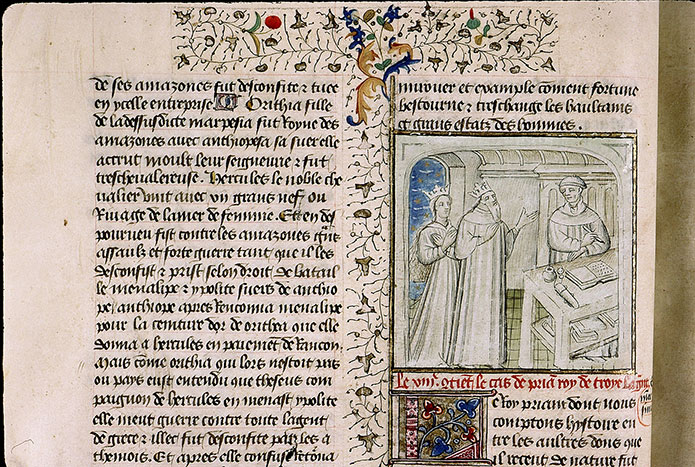 de ses amazones fut desconfite ⁊ tuee
en ycelle entreprise Orithia fille
de la dessusdicte marpesia fut Royne des
amazones avec anthiopa sa suer elle
accrut moult leur seigneurie ⁊ fut
treschevalereuse. Hercules le noble che
valier vint avec vn grans nef ou
Rivage de la mer de femenie. Et en des
pourveu fist contre les amazones
assaulz et forte guerre tant que il les
desconfist ⁊ prist selon droit de batail
le menalipe ⁊ ypolite suers de anthio
pe / anthiope apres Renconna menalipe
pour la ceinture dor de orithia que elle
donna a hercules en paiemet de Rancon.
Mais come orithia qui lors nestoit pas
ou pays eust entendu que theseus com
paignon de hercules en menast ypolite
elle meut guerre contre toute la gent
de grece ⁊ illec fut desconfite par les a
theniois. Et apres elle confuse Retorna
muer et example coment fortune
bestourne ⁊ treschange les haultains
et grans estatz des hommes.
Le cas de priam roy de troye
Le Roy priam dont nous
comptons hystoire en
tre les aultres dons que
il recent de nature fut